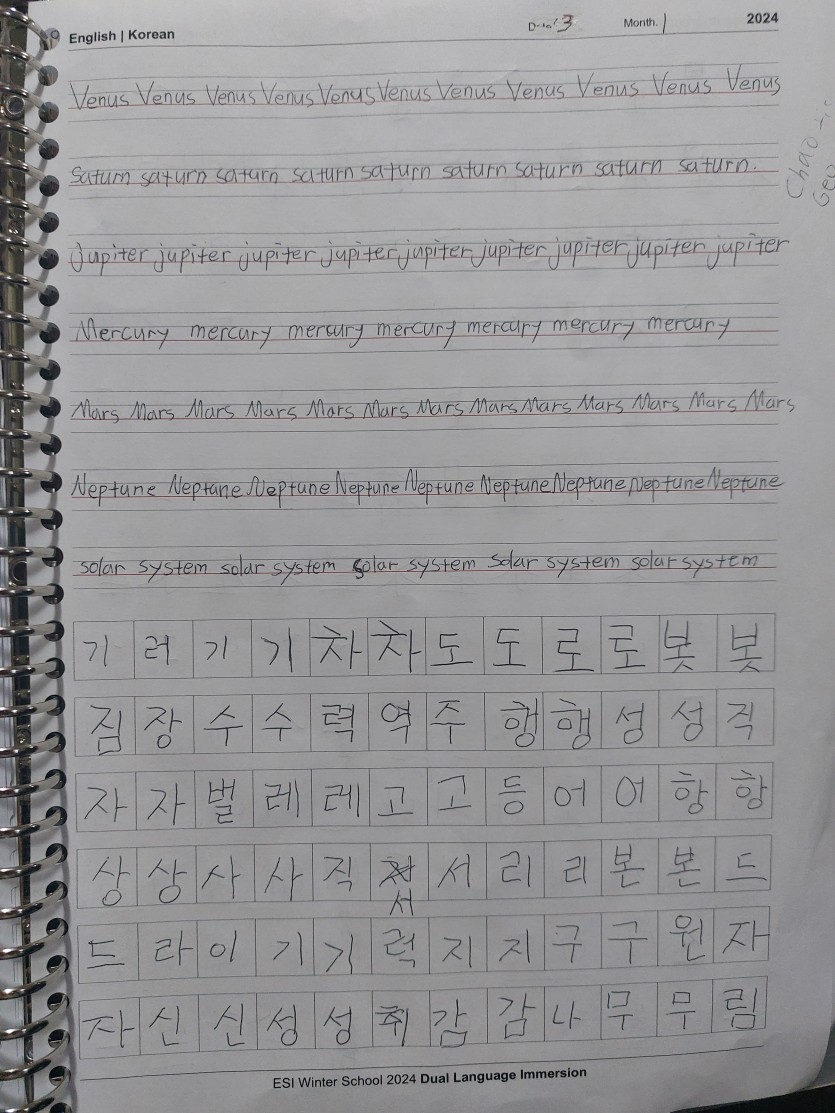 English | Korean 3 Month. 1 2024
Venus Venus Venus Venus Venus Venus Venus Venus Venus Venus Venus
Saturn saturn saturn saturn saturn saturn saturn saturn saturn.
Jupiter jupiter jupiter jupiter jupiter jupiter jupiter jupiter jupiter
Mercury mercury mercury mercury mercury mercury mercury
Mars Mars Mars Mars Mars Mars Mars Mars Mars Mars Mars Mars Mars
Neptune Neptune Neptune Neptune Neptune Neptune Neptune Neptune Neptune
solar system solar system solar system solar system solar system
기 러 기 기 차 차 도 도 로 로 봇 봇
짐 장 수 수 력 역 주 행 행 성 성 직
자 자 벌 레 레 고 고 등 어 어 항 항
상 상 사 사 직 서 서 리 리 본 본 드
드 라 이 기 기 력 지 지 구 구 원 자
자 신 신 성 성 취 감 감 나 무 무 림
ESI Winter School 2024 Dual Language Immersion